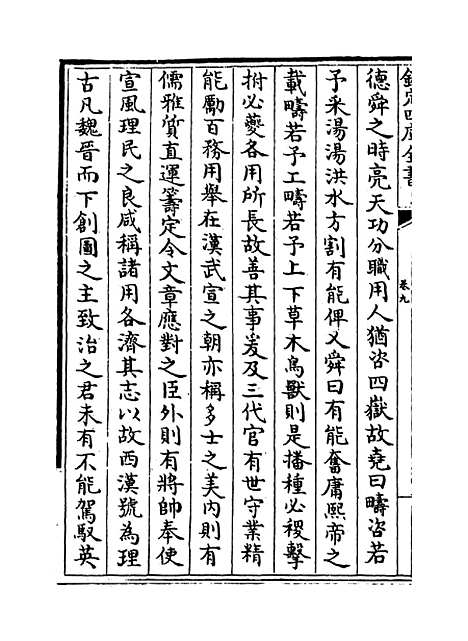 欽定四庫全書
卷九
德舜之時亮天功分職用人猶咨四嶽故堯曰疇咨若
予采湯湯洪水方割有能俾乂舜曰有能奮庸熙帝之
載疇若予工疇若予上下草木鳥獸則是播種必稷擊
拊必夔各用所長故善其事爰及三代官有世守業精
能勵百務用舉在漢武宣之朝亦稱多士之美内則有
儒雅質直運籌定令文章應對之臣外則有將帥奉使
宣風理民之良咸稱諸用各濟其志以故西漢號為理
古凡魏晉而下創圖之主致治之君未有不能駕馭英